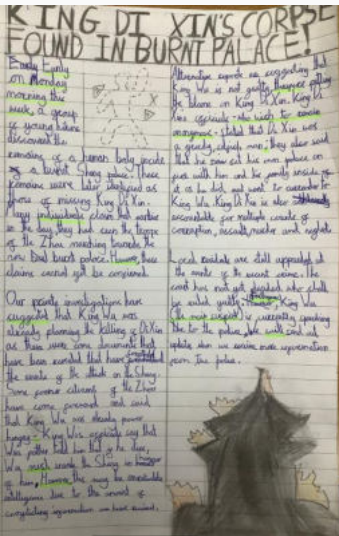 KING DI XIN'S CORPSE
FOUND IN BURNT PALACE!
Early
on Monday
morning this
week, a group
of young
discovered the
remains of a human body inside
of a burnt Shang palace. These
remains were later as
those of missing King Di Xin.
Many individuals claim that earlier
in the day, they had seen the troops
of the Zhou marching towards the
now burnt palace. However, these
claims cannot yet be confirmed.
Our private investigations have
suggested that King Wu was
already planning the killing of Di Xin
as there were some documents that
have been that have
the events of the attack on the Shang.
Some citizens of the Zhou
have come forward and said
that King Wu was already power
hungry. King Wu say that
Wu father told him that if he dies,
Wu must the Shang in
of him. However this may be
due to the amount of
we have received.
Alternative experts are suggesting that
King Wu is not guilty putting
the blame on King Di Xin. King Di
Xin - who wish to remain
anonymous - stated that Di Xin was
a greedy, man, they also said
that he saw set his own palace on
fire with him and the family inside of
it as he did not want to surrender to
King Wu. King Di Xin is also
accountable for multiple counts of
corruption, assault, murder and neglect.
Local residents are still appalled at
the events of the recent crime. The
court has not yet decided who shall
be ruled guilty. King Wu
(the main suspect) is currently speaking
to the police. We will send an
update when we receive more information
from the police.